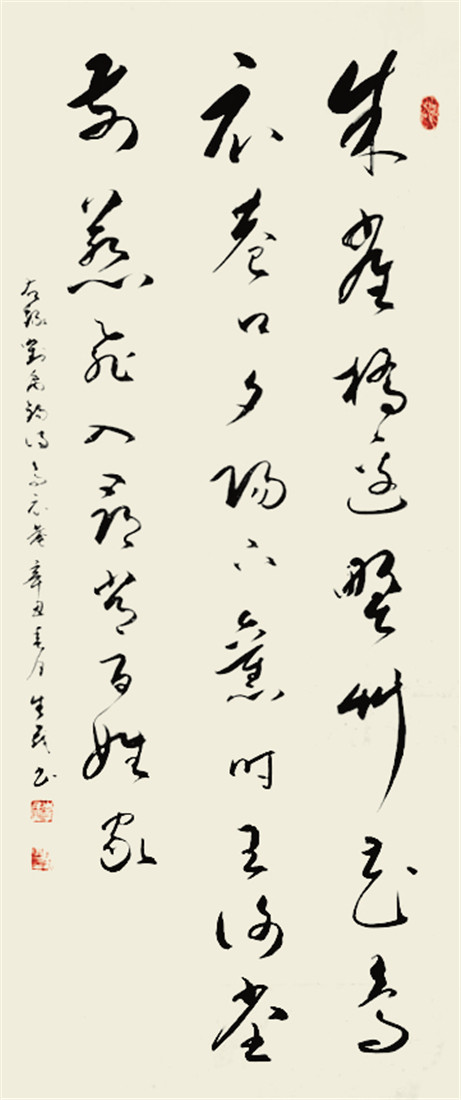 朱雀橋邊野草花烏
衣巷口夕陽下舊時王謝堂
前燕飛入尋常百姓家
右錄劉禹錫詩烏衣巷辛丑春月生書